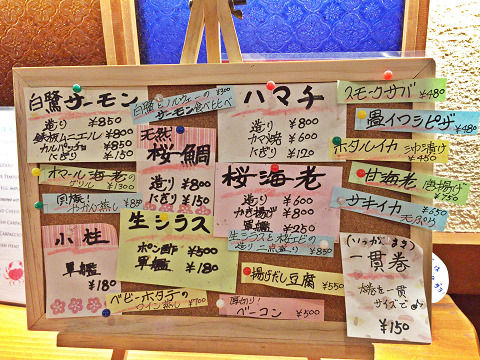 白鷺サーモン
造り ¥850
鉄板ムニエル ¥800
カルパッチョ ¥850
にぎり ¥150
白鷺とノルウェーの ¥300
サーモン食べ比べ
天然
桜鯛
造り ¥800
にぎり ¥150
ハマチ
造り ¥800
カマ焼 ¥600
にぎり ¥120
スモークサバ ¥480
畳イワシピザ ¥480
ホタルイカ
¥450
オマール海老の
グリル ¥1300
¥850
桜海老
造り ¥600
かき揚げ ¥800
軍艦 ¥250
甘海老 唐揚げ
¥750
サキイカ ¥650
天ぷら
小柱
軍艦
¥180
生シラス
ポン酢 ¥500
軍艦 ¥180
生シラスと桜エビの
造り二点盛り ¥850
揚げだし豆腐 ¥550
(いっかんまき)
一貫巻
太巻を一貫
サイズで
¥150
ベビーホタテの
ワイン蒸し ¥700
厚切り!
ベーコン ¥500